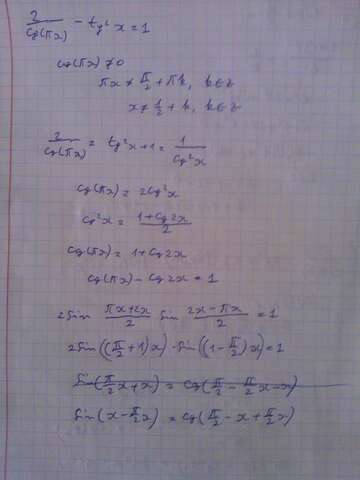 2/cos(πx) - tg²x = 1
cos(πx) ≠ 0
πx ≠ π/2 + πk, k∈z
x ≠ 1/2 + k, k∈z
2/cos(πx) = tg²x + 1 = 1/cos²x
cos(πx) = 2cos²x
cos²x = (1+cos2x)/2
cos(πx) = 1 + cos2x
cos(πx) - cos2x = 1
2sin (πx+2x)/2 sin (2x-πx)/2 = 1
2sin((π/2+1)x)·sin((1-π/2)x) = 1
sin(π/2x+x) = cos(π/2-π/2x-x)
sin(x-π/2x) = cos(π/2-x+π/2x)